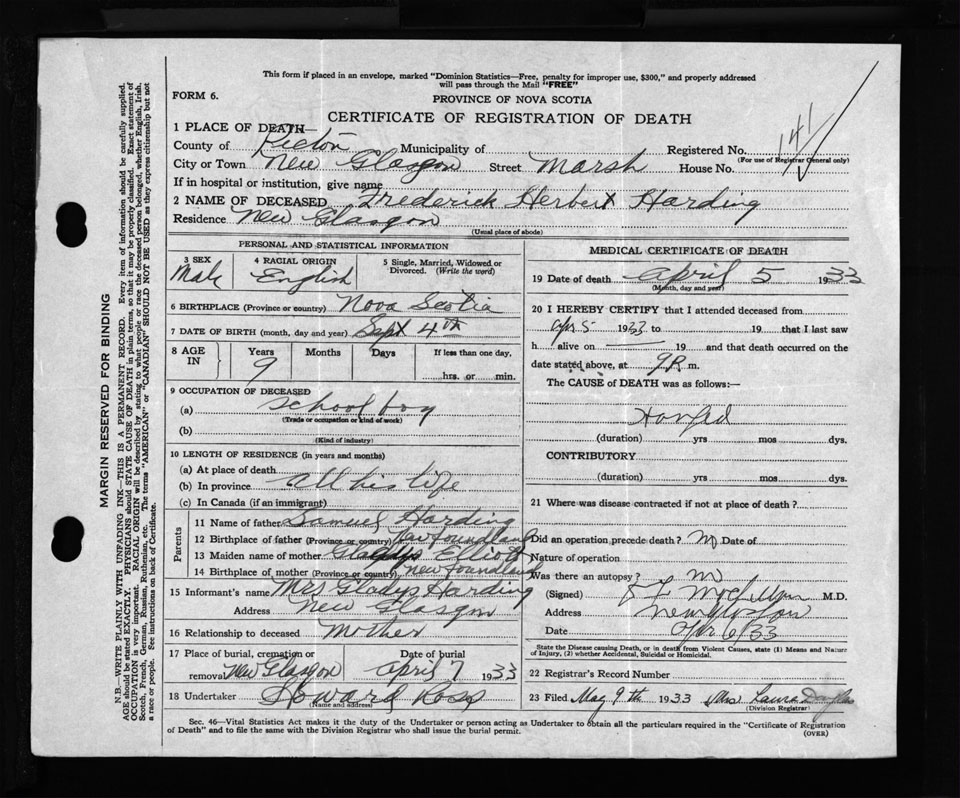 This form if placed in an envelope, marked "Dominion Statistics—Free, penalty for improper use, $300," and properly addressed
will pass through the Mail "FREE"
FORM 6.
PROVINCE OF NOVA SCOTIA
CERTIFICATE OF REGISTRATION OF DEATH
1 PLACE OF DEATH—
County of Pictou Municipality of Registered No. 141
(For use of Registrar General only)
City or Town New Glasgow Street Marsh House No.
If in hospital or institution, give name
2 NAME OF DECEASED Frederick Herbert Harding
Residence New Glasgow
(Usual place of abode)
PERSONAL AND STATISTICAL INFORMATION
3 SEX Male 4 RACIAL ORIGIN English 5 Single, Married, Widowed or Divorced. (Write the word)
6 BIRTHPLACE (Province or country) Nova Scotia
7 DATE OF BIRTH (month, day and year) Sept 4th
8 AGE IN Years 9 Months Days If less than one day, hrs. or min.
9 OCCUPATION OF DECEASED
(a) School boy
(Trade or occupation or kind of work)
(b)
(Kind of industry)
10 LENGTH OF RESIDENCE (in years and months)
(a) At place of death
(b) In province all his life
(c) In Canada (if an immigrant)
Parents
11 Name of father Samuel Harding
12 Birthplace of father (Province or country) Newfoundland
13 Maiden name of mother Gladys Elliott
14 Birthplace of mother (Province or country) Newfoundland
15 Informant's name Mrs Gladys Harding
Address New Glasgow
16 Relationship to deceased Mother
17 Place of burial, cremation or removal New Glasgow Date of burial April 7 1933
18 Undertaker Howard Ross
(Name and address)
MEDICAL CERTIFICATE OF DEATH
19 Date of death April 5 1933
(Month, day and year)
20 I HEREBY CERTIFY that I attended deceased from
Apr 5 1933 to 19 that I last saw
h alive on 19 and that death occurred on the
date stated above, at 9 P. m.
The CAUSE of DEATH was as follows:—
(duration) yrs mos dys.
CONTRIBUTORY
(duration) yrs mos dys.
21 Where was disease contracted if not at place of death?
Did an operation precede death? no Date of
Nature of operation
Was there an autopsy? no
(Signed) M.D.
Address New Glasgow
Date Apr 6/33
State the Disease causing Death, or in death from Violent Causes, state (1) Means and Nature
of Injury, (2) whether Accidental, Suicidal or Homicidal.
22 Registrar's Record Number
23 Filed May 9th 1933 Mrs Laura Douglas
(Division Registrar)
Sec. 46—Vital Statistics Act makes it the duty of the Undertaker or person acting as Undertaker to obtain all the particulars required in the "Certificate of Registration
of Death" and to file the same with the Division Registrar who shall issue the burial permit.
(OVER)
MARGIN RESERVED FOR BINDING
N.B.—WRITE PLAINLY WITH UNFADING INK—THIS IS A PERMANENT RECORD. Every item of information should be carefully supplied.
AGE should be stated EXACTLY. PHYSICIANS should STATE CAUSE OF DEATH in plain terms, so that it may be properly classified. Exact statement of
OCCUPATION is very important. RACIAL ORIGIN will be described by stating to what people or race the deceased person belonged, whether English, Irish,
Scotch, French, German, Russian, Ruthenian, etc. The terms "AMERICAN" or "CANADIAN" SHOULD NOT BE USED as they express citizenship but not
a race or people. See instructions on back of Certificate.